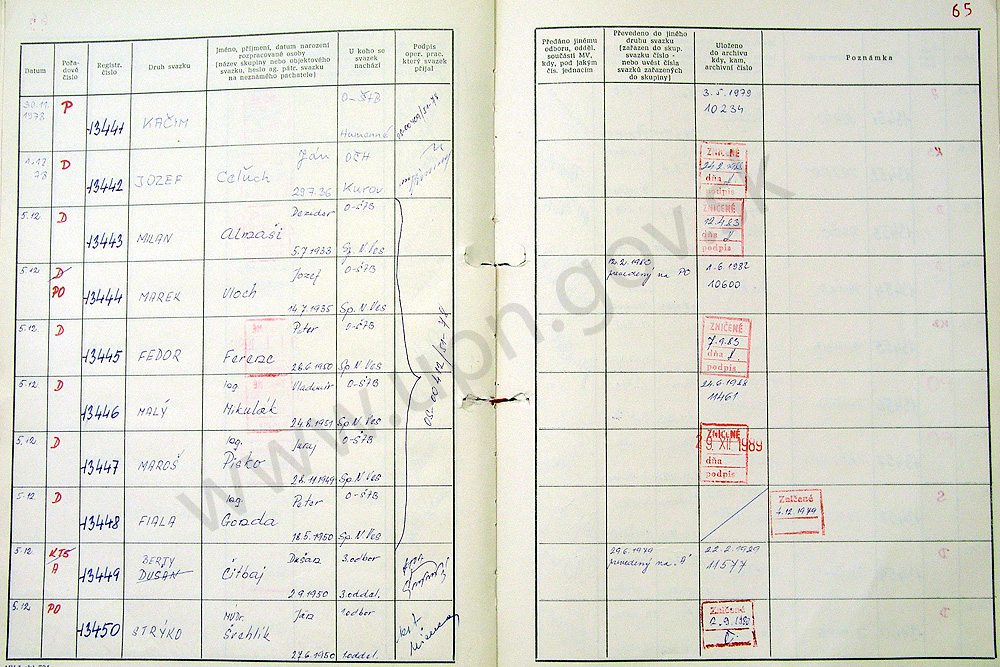 65
Datum
Pořadové číslo
Registr. číslo
Druh svazku
Jméno, příjmení, datum narození rozpracované osoby (název skupiny nebo objektového svazku, heslo ag. pátr. svazku na neznámého pachatele)
U koho se svazek nachází
Podpis oper. prac. který svazek přijal
Předáno jinému odboru, odděl. součásti MV, kdy, pod jakým čís. jednacím
Převedeno do jiného druhu svazku (zařazen do skup. svazku číslo - nebo uvést čísla svazků zařazených do skupiny)
Uloženo do archivu kdy, kam, archivní číslo
Poznámka
30.11. 1978 P 13441 KAČIM O-ŠTB Humenné
3.5.1979
10234
1.12. 78 D 13442 JOZEF Ján Celuch 29.7.36 Kurov
ZNIČENÉ
dňa
podpis
5.12. D 13443 MILAN Dezider Almaši 5.7.1933 O-ŠTB Sp. N. Ves
ZNIČENÉ
dňa
podpis
5.12. D PO 13444 MAREK Jozef Vloch 14.7.1935 O-ŠTB Sp. N. Ves
12.2.1980
prevedený na PO
1.6.1982
10600
5.12. D 13445 FEDOR Peter Ferenc 26.6.1950 O-ŠTB Sp. N. Ves
ZNIČENÉ
dňa
podpis
5.12. D 13446 MALÝ Ing. Vladimír Mikulák 24.8.1951 O-ŠTB Sp. N. Ves
24.6.1988
11461
5.12. D 13447 MAROŠ Ing. Juraj Pisko 28.11.1949 O-ŠTB Sp. N. Ves
ZNIČENÉ
29. XII 1989
dňa
podpis
5.12. D 13448 FIALA Ing. Peter Gonda 18.5.1950 O-ŠTB Sp. N. Ves
Zničené
4.12.1979
5.12. KTS A 13449 BERTY DUŠAN Dušan Čitbaj 2.9.1950 3.odbor 3.oddel.
29.6.1979
prevedený na "A"
22.2.1989
11577
5.12. PO 13450 STRÝKO MUDr. Ján Švehlík 27.6.1950 1.oddel.
Zničené
www.upn.gov.sk